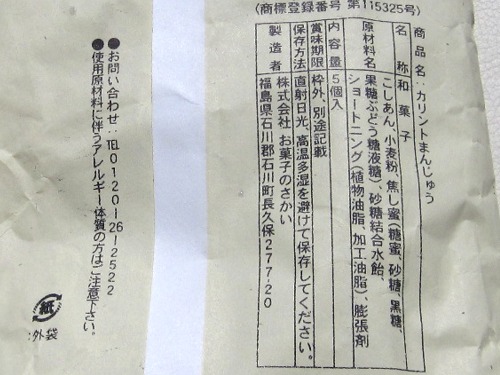 (商標登録番号 第115325号)
商品名:カリントまんじゅう
名称 和菓子
原材料名 こしあん、小麦粉、焦し蜜(糖蜜、砂糖、黒糖、
果糖ぶどう糖液糖)、砂糖結合水飴、
ショートニング(植物油脂、加工油脂)、膨張剤
内容量 5個入
賞味期限 枠外、別途記載
保存方法 直射日光、高温多湿を避けて保存してください。
製造者 株式会社 お菓子のさかい
福島県石川郡石川町長久保277-20
●お問い合わせ:TEL0120-26-2522
●使用原材料に伴うアレルギー体質の方はご注意下さい。
紙
:外袋